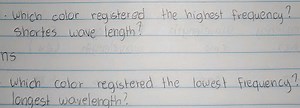 . Which color registered the highest frequency?
shortes wave length?
ns
. which color registered the lowest frequency?
longest wavelength?